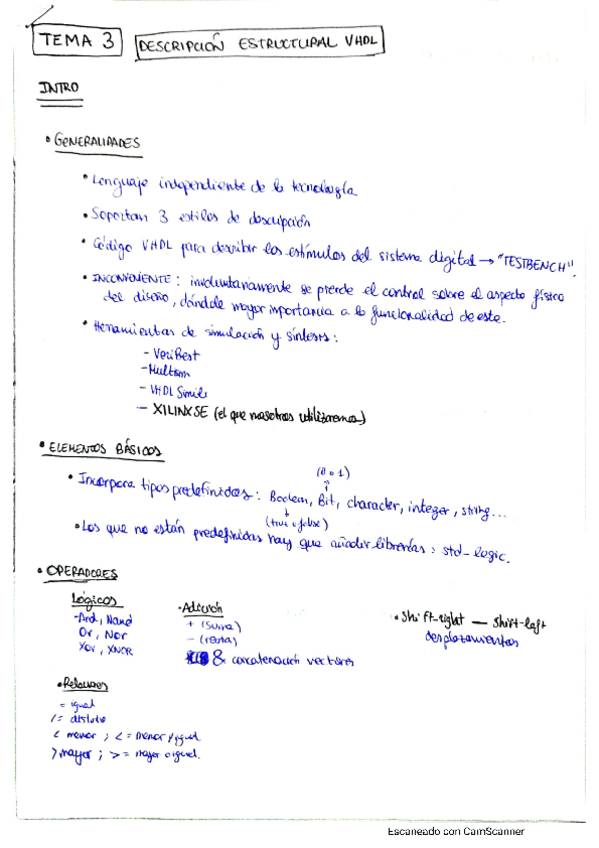 TEMA 3 DESCRIPCIÓN ESTRUCTURAL VHDL
INTRO
• GENERALIDADES
• Lenguaje independiente de la tecnología
• Soportan 3 estilos de descripción
• Código VHDL para describir los estímulos del sistema digital → "TESTBENCH".
• INCONVENIENTE: involuntariamente se pierde el control sobre el aspecto físico
del diseño, dándole mayor importancia a la funcionalidad de este.
• Herramientas de simulación y síntesis:
- VeriBest
- VHDL Simili
- XILINXSE (el que nosotros utilizaremos)
• ELEMENTOS BÁSICOS
(0 o 1)
• Incorpora tipos predefinidos: Boolean, Bit, character, integer, string...
(true o false)
• Los que no están predefinidos hay que añadir librerías: std-logic.
• OPERADORES
Lógicos
- And, Nand
Or, Nor
Xor, XNOR
• Adición
+ (suma)
- (resta)
& concatenación vectores
• Shift-right — shift-left
desplazamientos
• Relaciones
= igual
/= distinto
< menor ; <= menor o igual
> mayor ; >= mayor o igual.
Escaneado con CamScanner